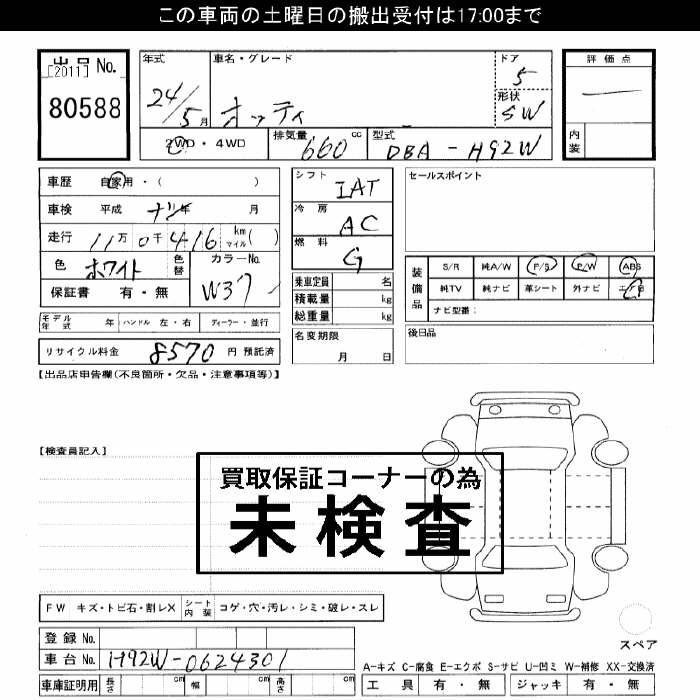 この車両の土曜日の搬出受付は17:00まで
出品 No.
[2011]
80588
年式 24/5月
車名・グレード オッティ
ドア 5
形状 SW
評価点 —
内装
2WD・4WD
排気量 660 cc
型式 DBA-H92W
車歴 自家用・( )
車検 平成 年 月
走行 11万0千416 km マイル( )
色 ホワイト 色替
カラーNo. W37
保証書 有・無
モデル年式 年 ハンドル 左・右 ディーラー・並行
リサイクル料金 8570 円 預託済
シフト IAT
冷房 AC
燃料 G
乗車定員 名
積載量 kg
総重量 kg
名変期限 月 日
セールスポイント
装備品
S/R 純A/W P/S P/W ABS
純TV 純ナビ 革シート 外ナビ
ナビ型番:
後日品
【出品店申告欄(不良箇所・欠品・注意事項等)】
【検査員記入】
買取保証コーナーの為
未検査
FW キズ・トビ石・割レX シート内装 コゲ・穴・汚レ・シミ・破レ・スレ
登録 No.
車台 No. H92W-0624301
車庫証明用 長さ cm 幅 cm 高さ cm
スペア
A-キズ C-腐食 E-エクボ S-サビ U-凹ミ W-補修 XX-交換済
工具 有・無 ジャッキ 有・無